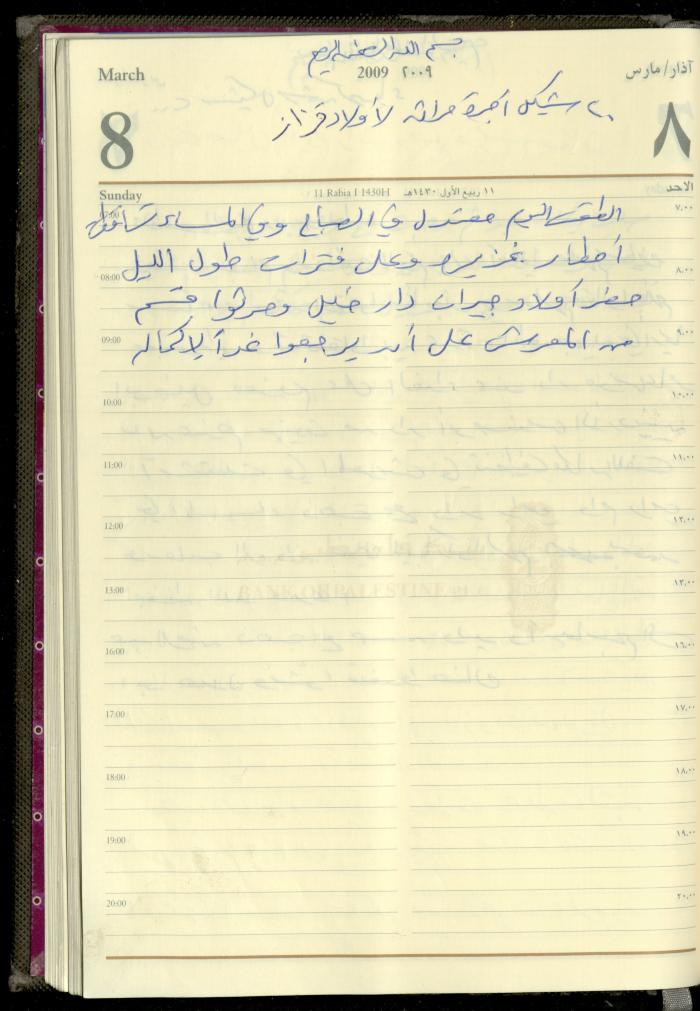 بسم الله الرحمن الرحيم
March 2009 ٢٠٠٩ آذار/مارس
8 ٨
٢٠ شيكل أجرة حراثة لأولاد قزاز
Sunday 11 Rabia I 1430H ١١ ربيع الأول ١٤٣٠هـ الاحد
الطقس اليوم معتدل في الصباح وفي المساء تساقط
07:00 ٧,٠٠
أمطار بغزيره وعلى فترات طول الليل
08:00 ٨,٠٠
حضر أولاد جيران دار خليل وحرثوا قسم
09:00 ٩,٠٠
من المعرش على أن يرجعوا غداً لإكماله
10:00 ١٠,٠٠
11:00 ١١,٠٠
12:00 ١٢,٠٠
13:00 ١٣,٠٠
BANK OF PALESTINE
16:00 ١٦,٠٠
17:00 ١٧,٠٠
18:00 ١٨,٠٠
19:00 ١٩,٠٠
20:00 ٢٠,٠٠